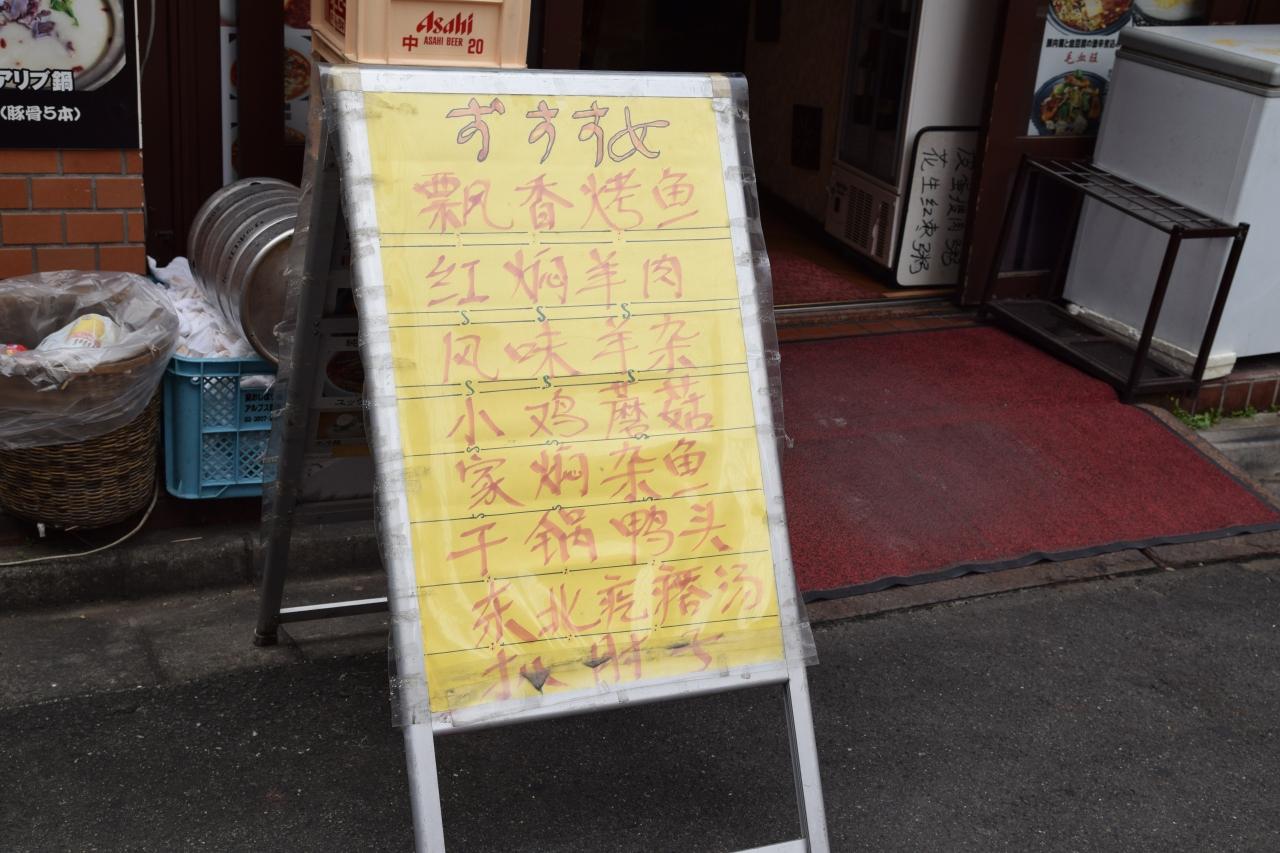 Asahi
中 ASAHI BEER 20
アリブ鍋
(豚骨5本)
ずすすめ
飘香烤鱼
红焖羊肉
风味羊杂
小鸡蘑菇
家焖杂鱼
干锅鸭头
东北疙瘩汤
扒肘子
毛血旺
皮蛋瘦肉粥
花生红枣粥